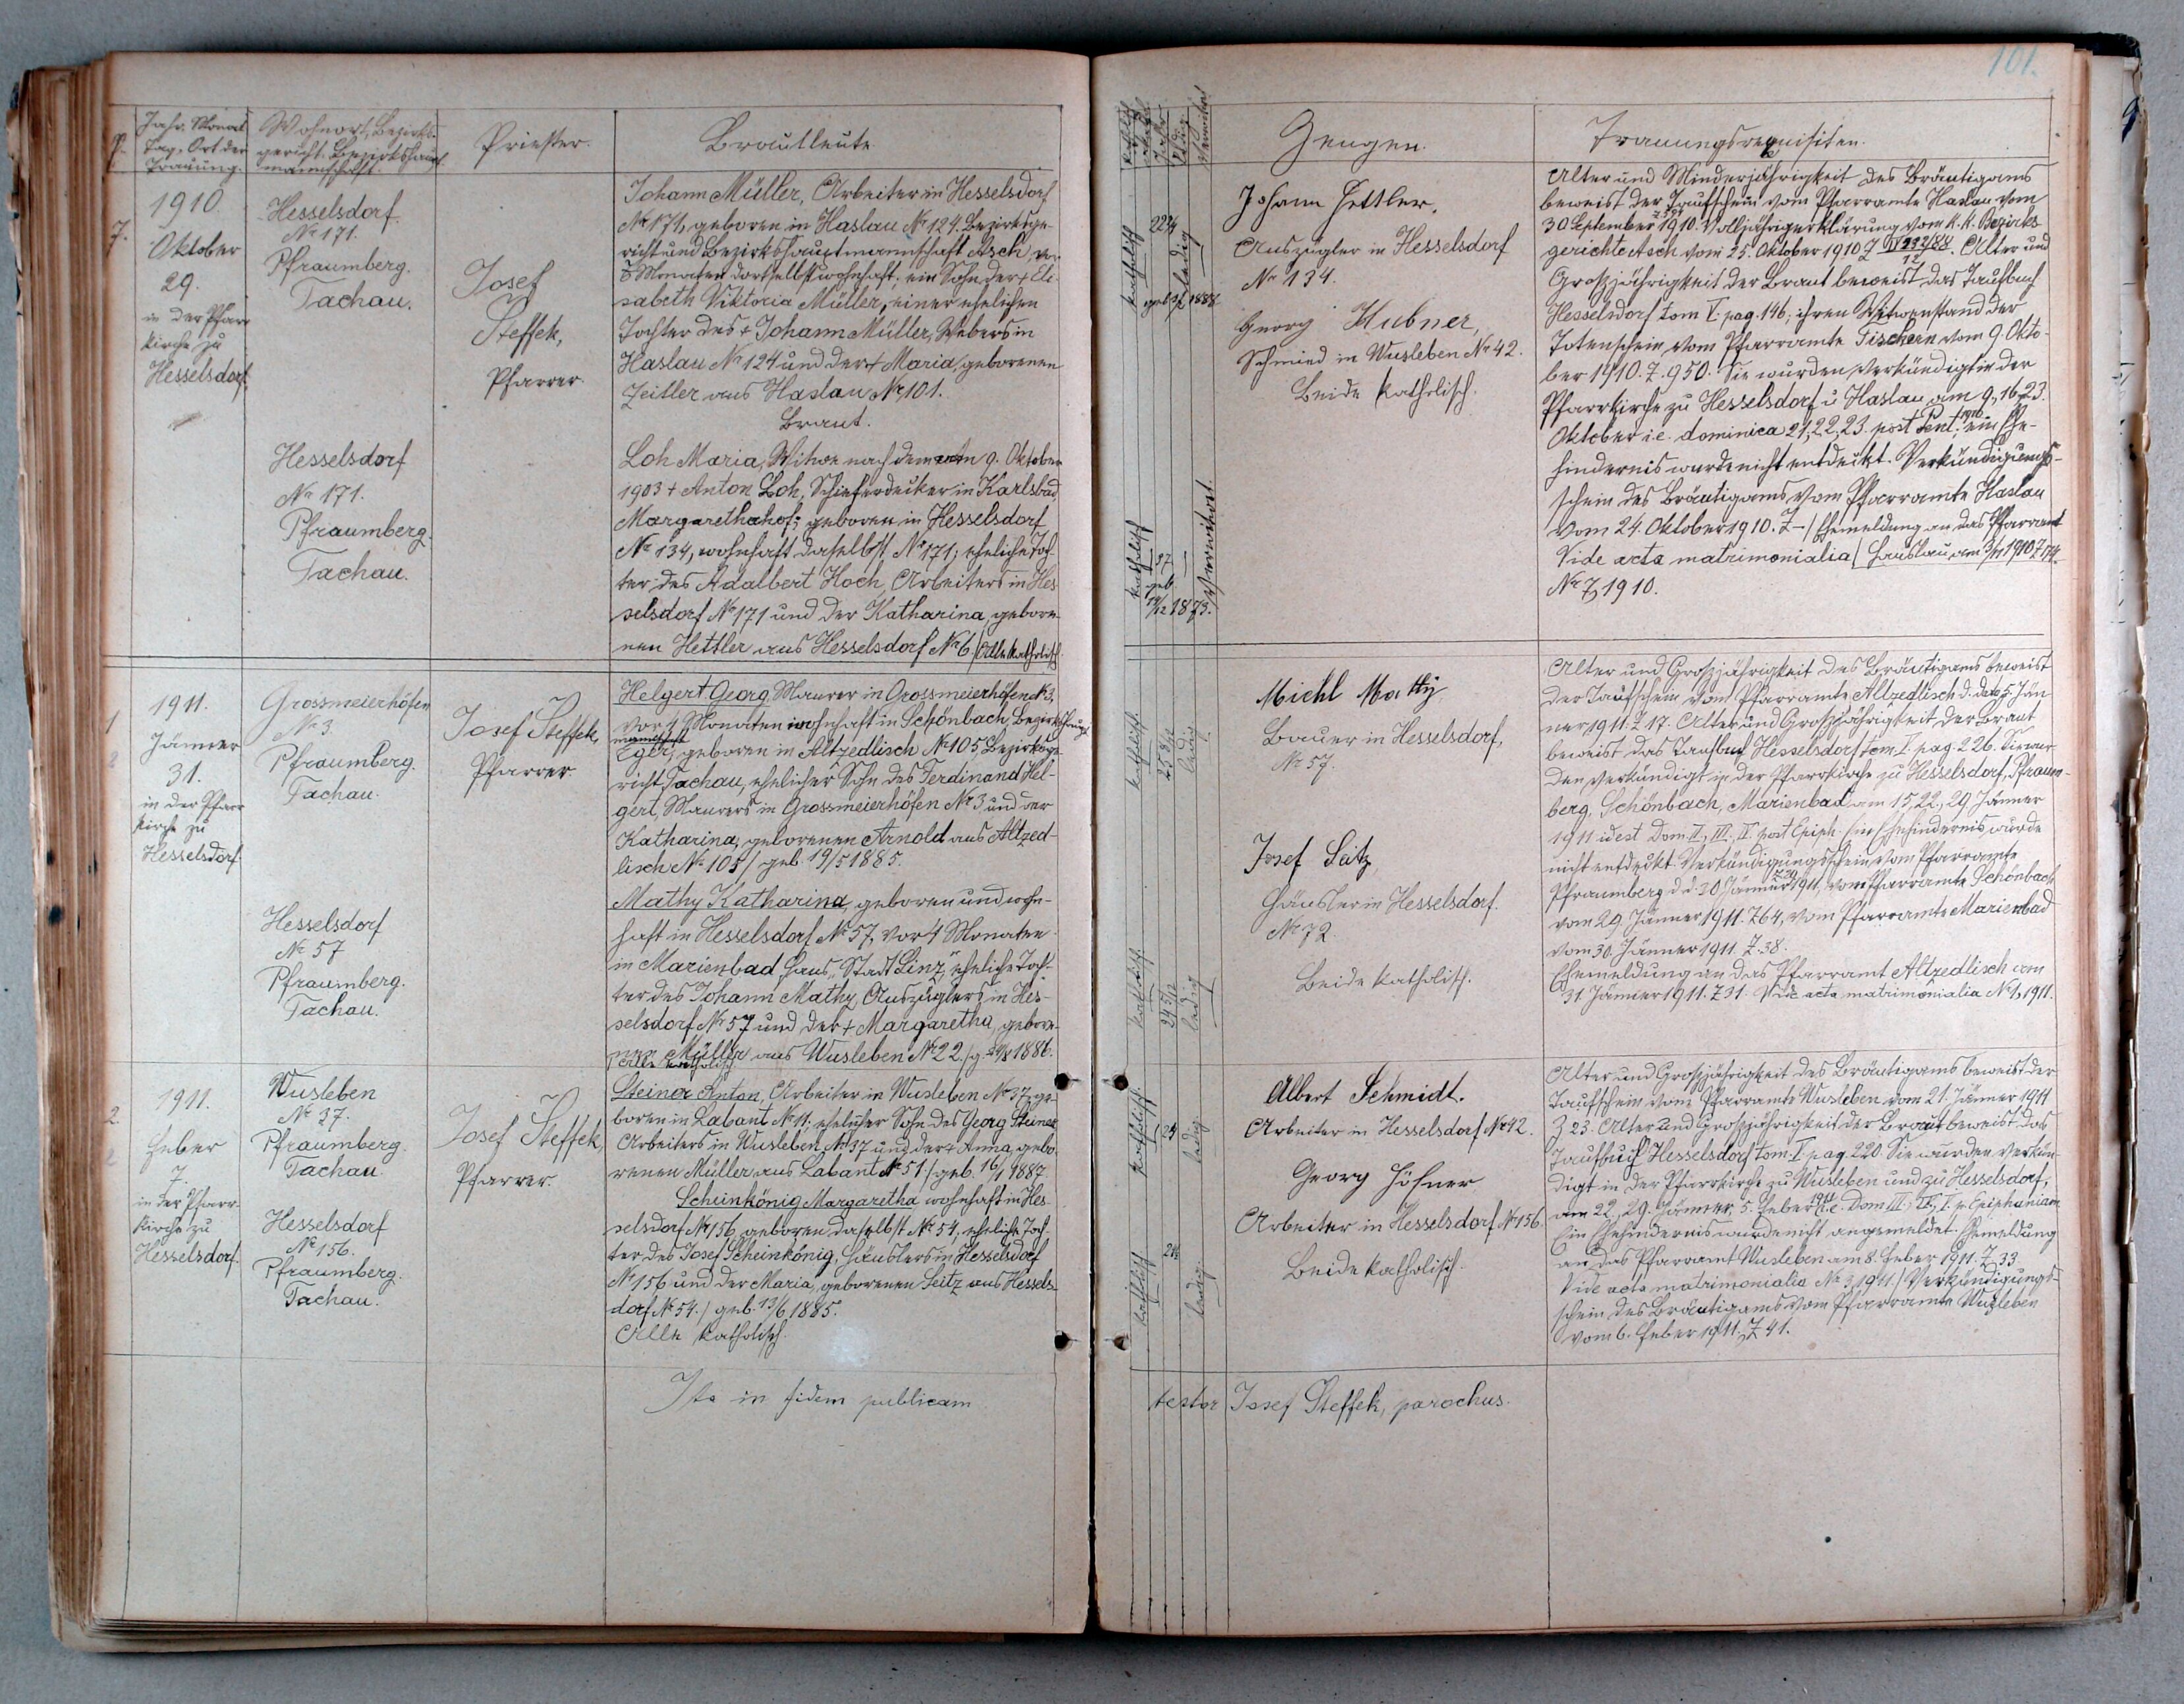 101.
Jahr, Monat
Tag, Ort der
Trauung.
Wohnort, Bezirks-
gericht, Bezirkshaupt
mannschaft.
Priester.
Brautleute
Zeugen.
Trauungsrequisiten.
7.
1910
Oktober
29.
in der Pfarr
kirche zu
Hesselsdorf
Hesselsdorf.
No 171.
Pfraumberg.
Tachau.
Josef
Steffek,
Pfarrer.
Johann Müller, Arbeiter in Hesselsdorf
No 171, geboren in Haslau No 124. Bezirksge-
richt und Bezirkshauptmannschaft Asch, vor
3 Monaten dortselbst wohnhaft, ein Sohn der + Eli-
sabeth Viktoria Müller, einer ehelichen
Tochter des + Johann Müller, Webers in
Haslau No 124 und der + Maria, geborenen
Zeitler aus Haslau No 101.
Braut.
Hesselsdorf
No 171.
Pfraumberg.
Tachau.
Loh Maria, Witwe nach dem am 9. Oktober
1903 + Anton Loh, Schieferdecker in Karlsbad
Margarethahof; geboren in Hesselsdorf
No 134, wohnhaft daselbst No 171; eheliche Toch
ter des Adalbert Hoch, Arbeiters in Hes
selsdorf No 171 und der Katharina, gebore-
nen Hettler aus Hesselsdorf No 6. / Alle katholisch.
katholisch
ledig
1888
katholisch
37
geb
1873.
verwitwet.
Johann Hettler,
Auszügler in Hesselsdorf
No 134.
Georg Hubner,
Schmied in Wusleben No 42.
Beide katholisch.
Alter und Minderjährigkeit des Bräutigams
beweist der Taufschein vom Pfarramte Haslau vom
30 September 1910. Volljährigerklärung vom k.k. Bezirks
gerichte Asch vom 25. Oktober 1910 Z. Alter und
Großjährigkeit der Braut beweist das Taufbuch
Hesselsdorf tom V. pag. 146; ihren Witwenstand der
Totenschein vom Pfarramte Fischern vom 9. Okto-
ber 1910. Z. 950. Sie wurden verkündigt in der
Pfarrkirche zu Hesselsdorf u Haslau am 9., 16., 23.
Oktober i.e. dominica 21, 22, 23. post Pent. 1910 ein Ehe-
hindernis wurde nicht entdeckt. Verkündigungs-
schein des Bräutigams vom Pfarramte Haslau
vom 24. Oktober 1910. Z – / Ehemeldung an das Pfarramt
Vide acta matrimonialia / Haslau am
No 7, 1910.
1
1911.
Jänner
31.
in der Pfarr
kirche zu
Hesselsdorf.
Grossmeierhöfen
No 3.
Pfraumberg.
Tachau.
Josef Steffek,
Pfarrer.
Helgert Georg Maurer in Grossmeierhöfen No 3,
vor 4 Monaten wohnhaft in Schönbach, Bezirkshaupt
mannschaft
Eger, geboren in Altzedlisch No 105 Bezirksge-
richt Tachau, ehelicher Sohn des Ferdinand Hel-
gert, Maurers in Grossmeierhöfen No 3 und der
Katharina, geborenen Arnold aus Altzed-
lisch No 105 / geb. 19/5 1885.
Hesselsdorf
No 57
Pfraumberg.
Tachau.
Mathy Katharina, geboren und wohn-
haft in Hesselsdorf No 57, vor 4 Monaten
in Marienbad Haus „Stadt Linz", eheliche Toch-
ter des Johann Mathy, Auszüglers in Hes-
selsdorf No 57 und der + Margaretha, gebore-
nen Müller aus Wusleben No 22. / g. 1886.
Alle katholisch.
katholisch.
25 8/12
ledig
katholisch.
24 5/12
ledig
Michl Mathy
Bauer in Hesselsdorf,
No 57.
Josef Seitz
Häusler in Hesselsdorf.
No 72.
Beide katholisch.
Alter und Großjährigkeit des Bräutigams beweist
der Taufschein vom Pfarramte Altzedlisch d. dato 5. Jän
ner 1911. Z 17. Alter und Großjährigkeit der Braut
beweist das Taufbuch Hesselsdorf tom V. pag. 226. Sie wur-
den verkündigt in der Pfarrkirche zu Hesselsdorf, Pfraum-
berg, Schönbach, Marienbad am 15, 22., 29 Jänner
1911 idest Dom. II, III, IV post Epiph. Ein Ehehindernis wurde
nicht entdeckt. Verkündigungsschein vom Pfarramte
Pfraumberg d.d. 30 Jänner 1911, vom Pfarramte Schönbach
vom 29. Jänner 1911. Z 64, vom Pfarramte Marienbad
vom 30. Jänner 1911. Z. 38.
Ehemeldung an das Pfarramt Altzedlisch am
31. Jänner 1911. Z 31. Vide acta matrimonialia No 1, 1911.
2.
1911.
Feber
7.
in der Pfarr-
kirche zu
Hesselsdorf.
Wusleben
No 37.
Pfraumberg.
Tachau.
Hesselsdorf
No 156.
Pfraumberg.
Tachau.
Josef Steffek,
Pfarrer.
Steiner Anton, Arbeiter in Wusleben No 37, ge-
boren in Labant No 11; ehelicher Sohn des Georg Steiner
Arbeiters in Wusleben No 37 und der + Anna, gebo-
renen Müller aus Labant No 51. / geb. 16/1 1887
Scheinkönig Margaretha wohnhaft in Hes
selsdorf No 156, geboren daselbst No 54, eheliche Toch
ter des Josef Scheinkönig, Häuslers in Hesselsdorf
No 156 und der Maria, geborenen Seitz aus Hessels-
dorf No 54. / geb. 13/6 1885.
Alle katholisch.
katholisch.
24
ledig
katholisch
ledig.
Albert Schmidt.
Arbeiter in Hesselsdorf No 42.
Georg Höfner
Arbeiter in Hesselsdorf No 156.
Beide katholisch.
Alter und Großjährigkeit des Bräutigams beweist der
Taufschein vom Pfarramte Wusleben vom 21. Jänner 1911
Z 23. Alter und Großjährigkeit der Braut beweist das
Taufbuch Hesselsdorf tom. V pag. 220. Sie wurden verkün-
digt in der Pfarrkirche zu Wusleben und zu Hesselsdorf,
am 22, 29. Jänner 5. Feber 1911 i.e. Dom III, IV, V. p. Epiphaniam
Ein Ehehindernis wurde nicht angemeldet. Ehemeldung
an das Pfarramt Wusleben am 8. Feber 1911. Z 33.
Vide acta matrimonialia No 2, 1911. / Verkündigungs-
schein des Bräutigams vom Pfarramte Wusleben
vom 6. Feber 1911. Z 41.
Ita in fidem publicam
testor Josef Steffek, parochus.